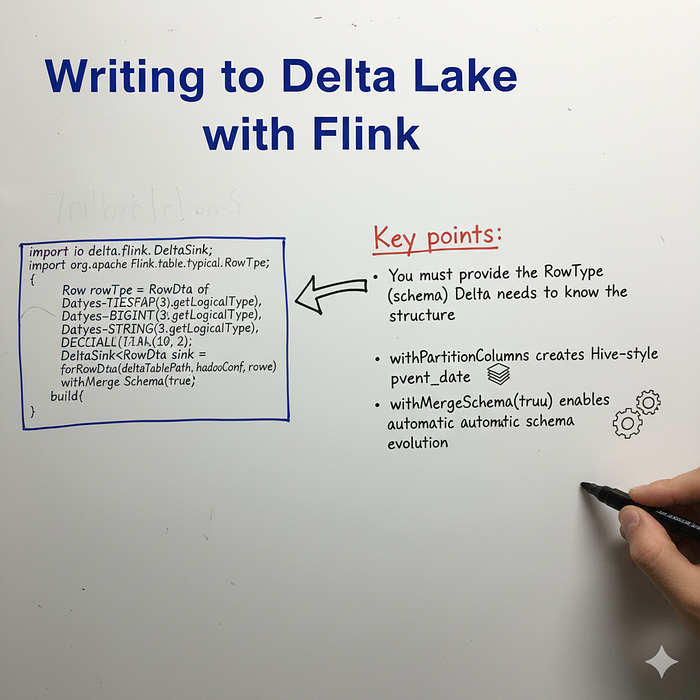 Writing to Delta Lake
with Flink
import io delta.flink. DeltaSink;
import org.apache Flink.table.typical.RowTpe;
{
Row rowTpe = RowDta of
Datyes-TIESFAP(3).getLogicalType),
Datyes-BIGINT(3.getLogicalType),
Datyes-STRING(3.getLogicalType),
(10, 2);
DeltaSink<RowDta sink =
forRowDtta(deltaTablePath, hadooConf, rowe)
withMerge Schema(true;
build{
}
Key points:
• You must provide the RowType
(schema) Delta needs to know the
structure
• withPartitionColumns creates Hive-style
pvent_date
• withMergeSchema(truu) enables
automatic automatic schema
evolution